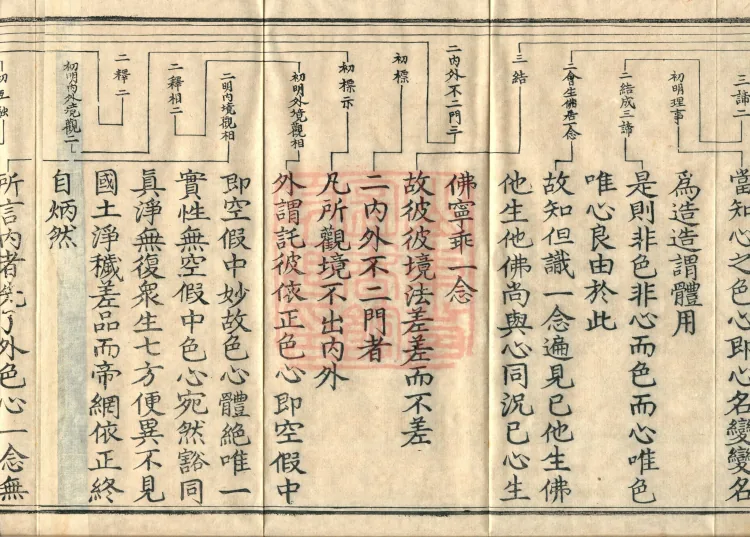 三諦二
初明理事
二結成三諦
二會生佛居一念
三結
二內外不二門三
初標
初標示
初明外境觀相
二明內境觀相
二釋相二
二釋二
初明內外境觀二
當知心之色心即心名變變名
爲造造謂體用
是則非色非心而色而心唯色
唯心良由於此
故知但識一念遍見已他生佛
他生他佛尚與心同況已心生
佛寧乖一念
故彼彼境法差差而不差
二內外不二門者
凡所觀境不出內外
外謂託彼依正色心即空假中
即空假中妙故色心體絕唯一
實性無空假中色心宛然豁同
真淨無復衆生七方便異不見
國土淨穢差品而帝網依正終
自炳然
所言內者先了外色心一念無